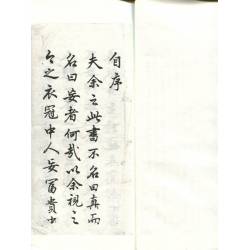 自序
夫余之此書不名曰真而
名曰妄者何哉以余視之
今之衣冠中人妄冒貴少